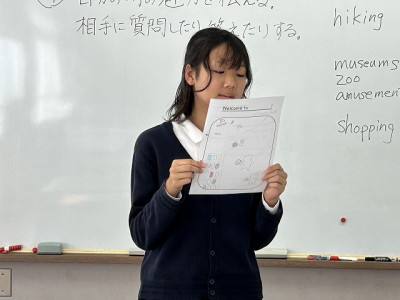 相手に質問したり答えたりする。
hiking
museums
zoo
amusemen
shopping
Welcome to